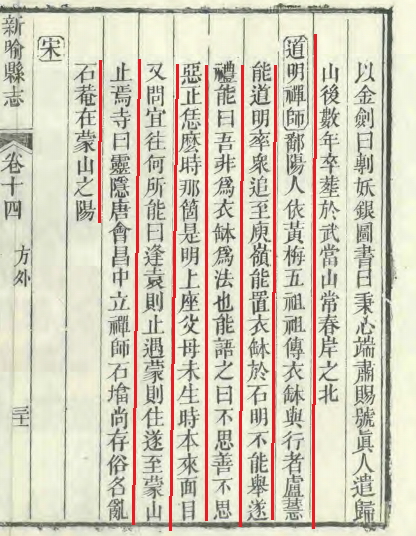 以金劍曰剸妖銀圖書曰秉心端肅賜號眞人遣歸
山後數年卒塟於武當山常春岸之北
道明禪師鄱陽人依黃梅五祖祖傳衣鉢與行者盧慧
能道明率衆追至庾嶺能置衣鉢於石明不能舉遂
禮能曰吾非爲衣鉢爲法也能語之曰不思善不思
惡正恁麼時那箇是明上座父母未生時本來面目
又問宜往何所能曰逢袁則止遇蒙則住遂至蒙山
止焉寺曰靈隱唐會昌中立禪師石墖尚存俗名亂
石菴在蒙山之陽
宋
新喻縣志
卷十四
方外